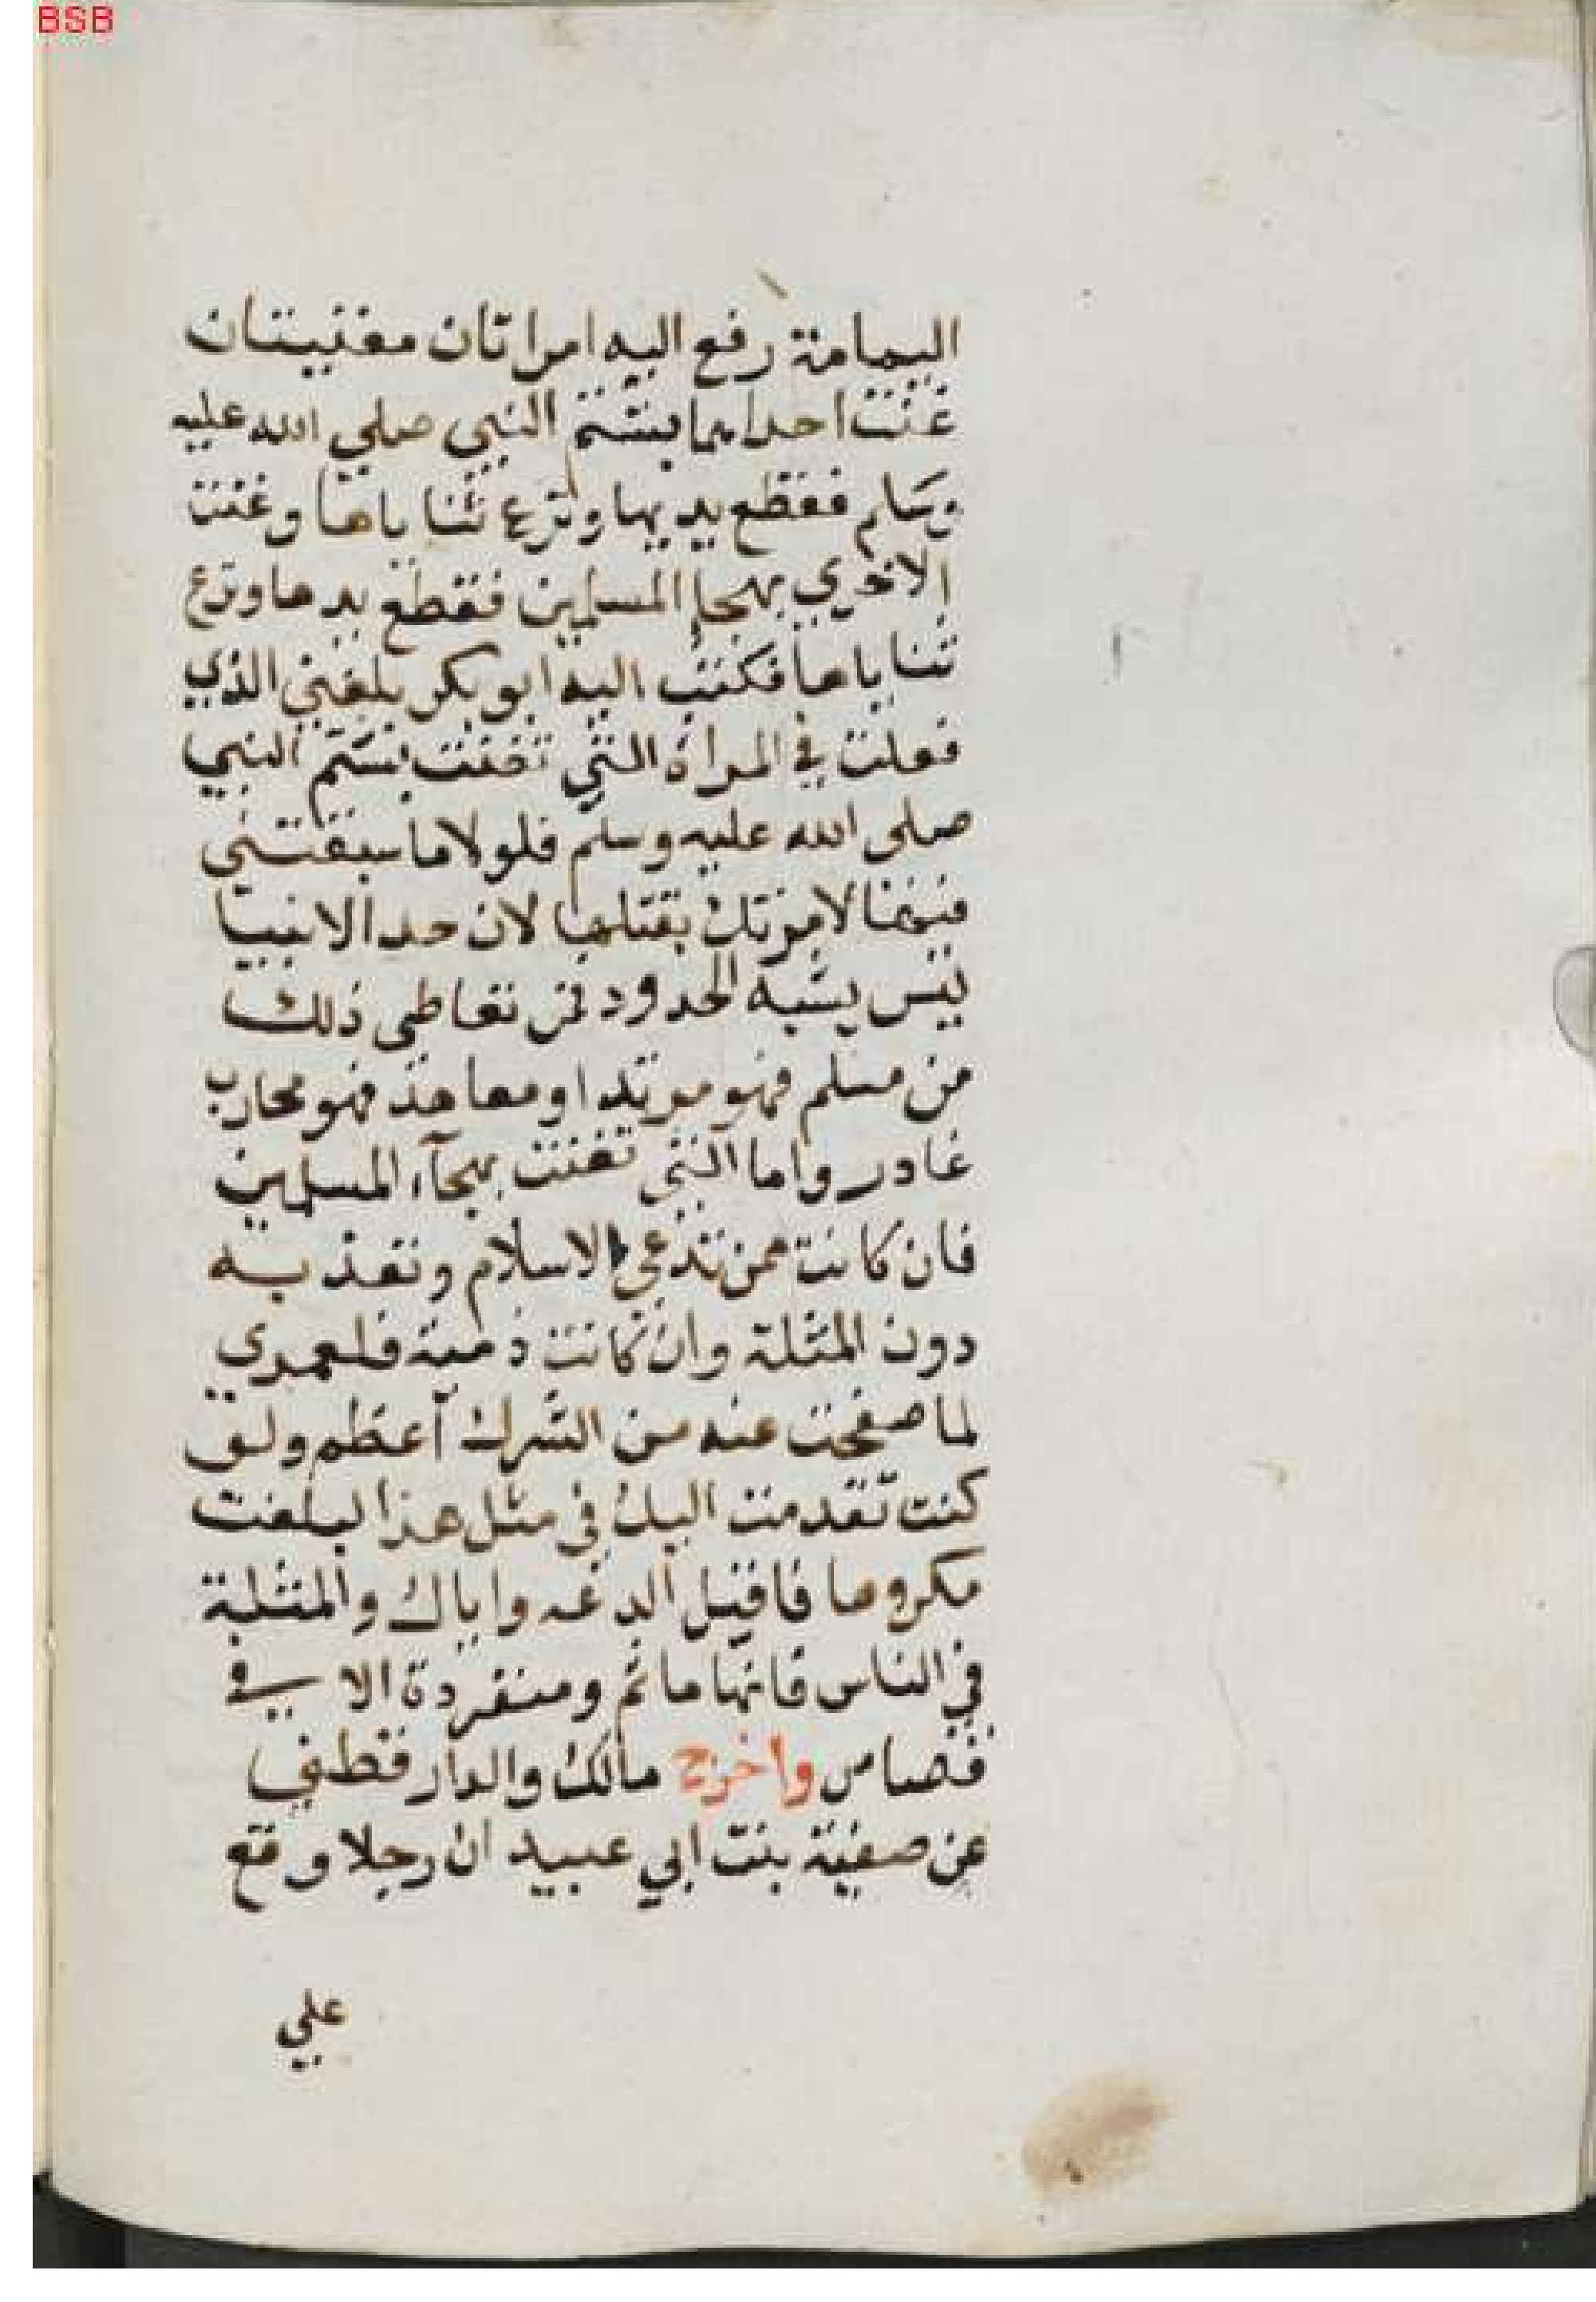 BSB
اليمامة رفع اليه امراتان مغنيتان
غنت احداهما بشتم النبي صلي الله عليه
وسلم فقطع يديها ونزع ثناياها وغنت
الاخري بهجا المسلمين فقطع يدها ونزع
ثناياها فكتب اليه ابو بكر بلغني الذي
فعلت في المراة التي تغنت بشتم النبي
صلى الله عليه وسلم فلولا ما سبقتني
فيها لامرتك بقتلها لان حد الانبيا
ليس يشبه الحدود فمن تعاطى ذلك
من مسلم فهو مرتد او معاهد فهو محارب
غادر واما التي تغنت بهجآء المسلمين
فان كانت ممن تدعى الاسلام وتعذيبه
دون المثلة وان كانت ذمية فلعمري
لما صفحت عنه من الشرك أعظم ولو
كنت تقدمت اليك في مثل هذا لبلغت
مكروها فاقبل الدعه واياك والمثلة
في الناس فانها ماثم ومنفردة الا في
قصاس واخرج مالك والدارقطني
عن صفية بنت ابي عبيد ان رجلا وقع
علي